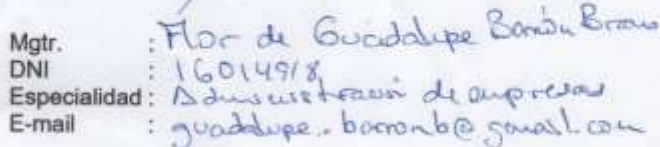 Mgtr. : Flor de Guadalupe Barrón Bravo
DNI : 16014918
Especialidad : Administración de empresas
E-mail : guadalupe.barronb@gmail.com